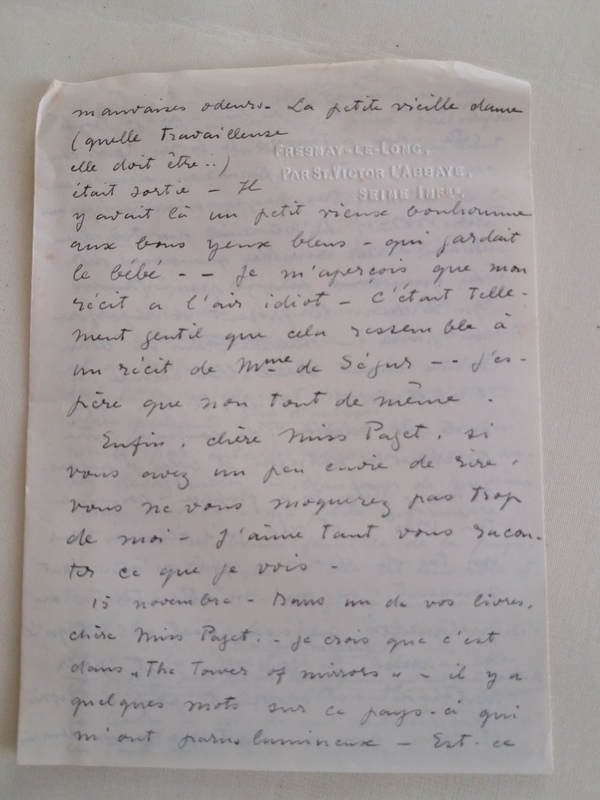 mauvaises odeurs. La petite vieille dame
(quelle travailleuse
FRESNAY-LE-LONG,
PAR ST VICTOR L'ABBAYE,
SEINE INFRE.
elle doit être..)
était sortie - Il
y avait là un petit vieux bonhomme
aux bons yeux bleus - qui gardait
le bébé - - Je m'aperçois que mon
récit a l'air idiot - C'était telle-
ment gentil que cela ressemble à
un récit de Mme de Ségur - - J'es-
père que non tout de même.
Enfin, chère Miss Paget, si
vous avez un peu envie de rire,
vous ne vous moquerez pas trop
de moi - J'aime tant vous racon-
ter ce que je vois -
15 novembre - Dans un de vos livres,
chère Miss Paget, - je crois que c'est
dans "The Tower of mirrors" - il y a
quelques mots sur ce pays-ci qui
m'ont paru lumineux - Est-ce